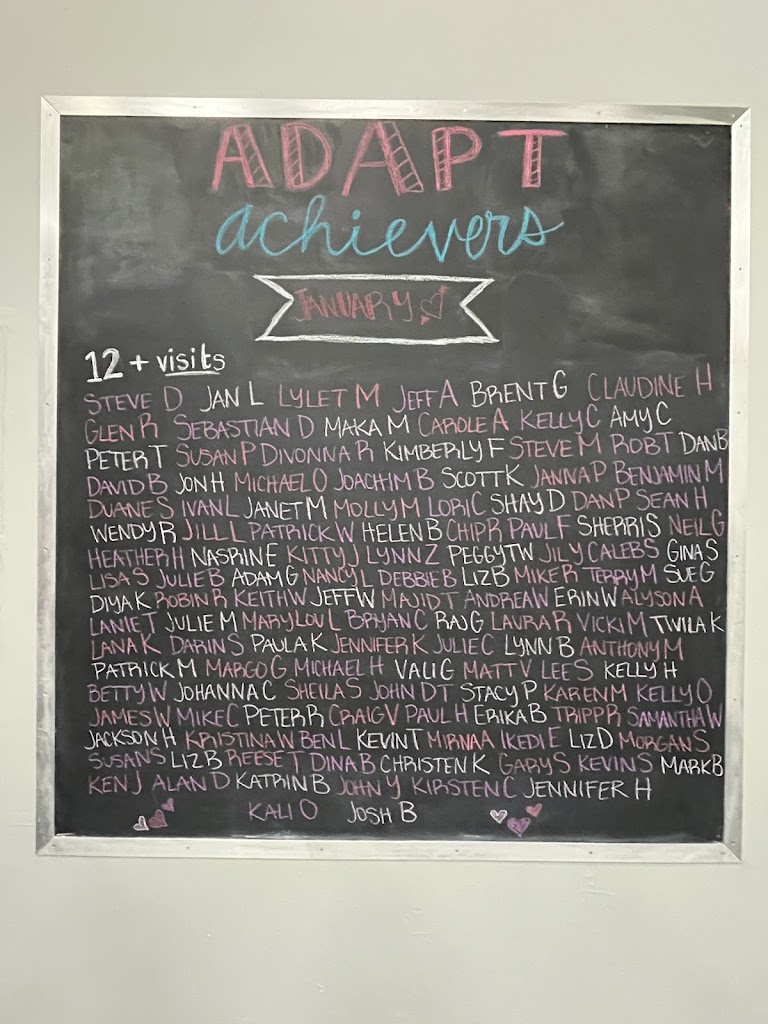 ADAPT
achievers
JANUARY
12 + visits
STEVE D JAN L LYLET M JEFF A BRENT G CLAUDINE H
GLEN R SEBASTIAN D MAKA M CAROLE A KELLY C AMY C
PETER T SUSAN P DIVONNA R KIMBERLY F STEVE M ROB T DAN B
DAVID B JON H MICHAEL O JOACHIM B SCOTT K JANNA P BENJAMIN M
DUANE S IVAN L JANET M MOLLY M LORI C SHAY D DAN P SEAN H
WENDY R JILL L PATRICK W HELEN B CHIP R PAUL F SHERRI S NEIL G
HEATHER H NASRIN E KITTY J LYNN Z PEGGY TW JIL Y CALEB S GINA S
LISA S JULIE B ADAM G NANCY L DEBBIE B LIZ B MIKE R TERRY M SUE G
DIYA K ROBIN R KEITH W JEFF W MAJID T ANDREA W ERIN W ALYSON A
LANIE T JULIE M MARY LOU L BRYAN C RAJ G LAURA R VICKI M TWILA K
LANA K DARIN S PAULA K JENNIFER K JULIE C LYNN B ANTHONY M
PATRICK M MARGO G MICHAEL H VALI G MATT V LEE S KELLY H
BETTY W JOHANNA C SHEILA S JOHN DT STACY P KAREN M KELLY O
JAMES W MIKE C PETER R CRAIG V PAUL H ERIKA B TRIPP R SAMANTHA W
JACKSON H KRISTINA W BEN L KEVIN T MIRNA A IKEDI E LIZ D MORGAN S
SUSAN S LIZ B REESE T DINA B CHRISTEN K GARY S KEVIN S MARK B
KEN J ALAN D KATRIN B JOHN Y KIRSTEN C JENNIFER H
KALI O JOSH B